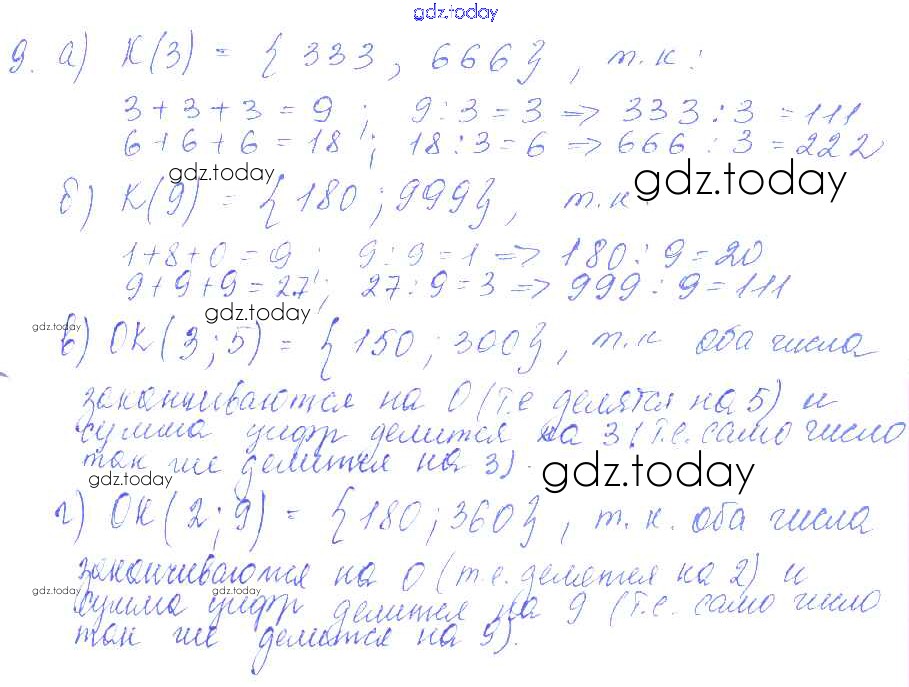 gdz.today
9. а) К(3) = {333, 666}, т.к:
3+3+3=9; 9:3=3 => 333:3=111
6+6+6=18; 18:3=6 => 666:3=222
gdz.today
gdz.today
б) К(9) = {180; 999}, т.к:
1+8+0=9; 9:9=1 => 180:9=20
9+9+9=27; 27:9=3 => 999:9=111
gdz.today
gdz.today
в) ОК(3;5) = {150; 300}, т.к оба числа
заканчиваются на 0 (т.е делятся на 5) и
сумма цифр делится на 3 (т.е. само число
так же делится на 3).
gdz.today
gdz.today
г) ОК(2;9) = {180; 360}, т.к. оба числа
заканчиваются на 0 (т.е. делятся на 2) и
gdz.today
gdz.today
сумма цифр делится на 9 (т.е. само число
так же делится на 9).